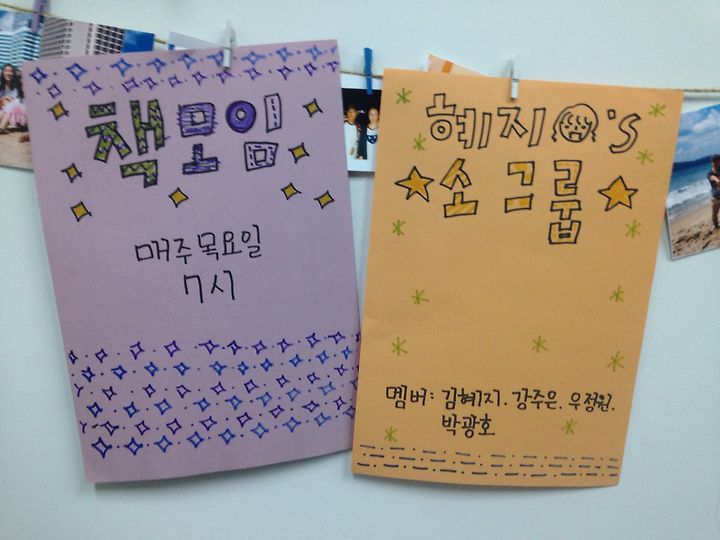 책모임
매주 목요일
7시
혜지's
소그룹
멤버: 김혜지. 강주은. 우정원.
박광호